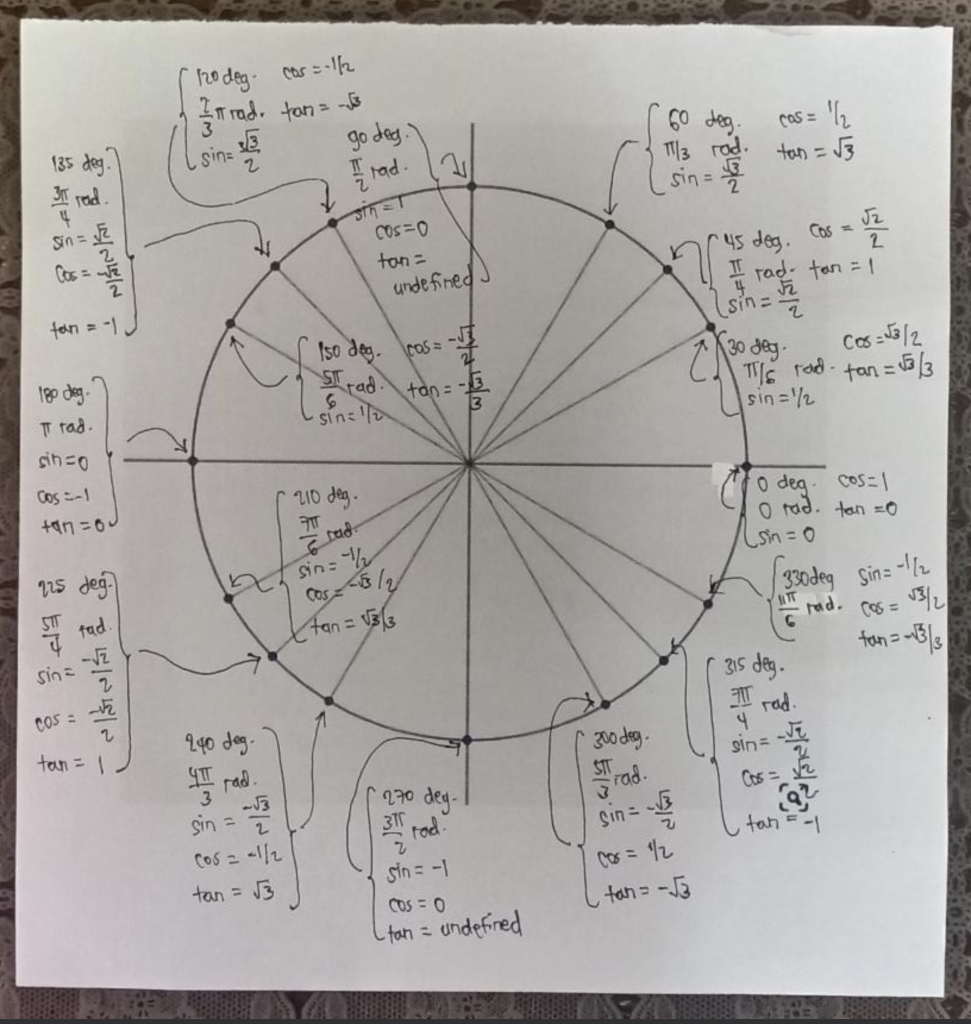 120 deg. cos = -1/2
2/3 π rad. tan = -√3
sin = 3√3/2
90 deg.
π/2 rad.
sin = 1
cos = 0
tan =
undefined
60 deg. cos = 1/2
π/3 rad. tan = √3
sin = √3/2
135 deg.
3π/4 rad.
sin = √2/2
cos = -√2/2
tan = -1
45 deg. cos = √2/2
π/4 rad. tan = 1
sin = √2/2
150 deg. cos = -√3/2
5π/6 rad. tan = -√3/3
sin = 1/2
30 deg. cos = √3/2
π/6 rad. tan = √3/3
sin = 1/2
180 deg.
π rad.
sin = 0
cos = -1
tan = 0
0 deg. cos = 1
0 rad. tan = 0
sin = 0
210 deg.
7π/6 rad.
sin = -1/2
cos = -√3/2
tan = √3/3
330 deg sin = -1/2
11π/6 rad. cos = √3/2
tan = -√3/3
225 deg.
5π/4 rad.
sin = -√2/2
cos = -√2/2
tan = 1
315 deg.
7π/4 rad.
sin = -√2/2
cos = √2/2
tan = -1
240 deg.
4π/3 rad.
sin = -√3/2
cos = -1/2
tan = √3
270 deg.
3π/2 rad.
sin = -1
cos = 0
tan = undefined
300 deg.
5π/3 rad.
sin = -√3/2
cos = 1/2
tan = -√3